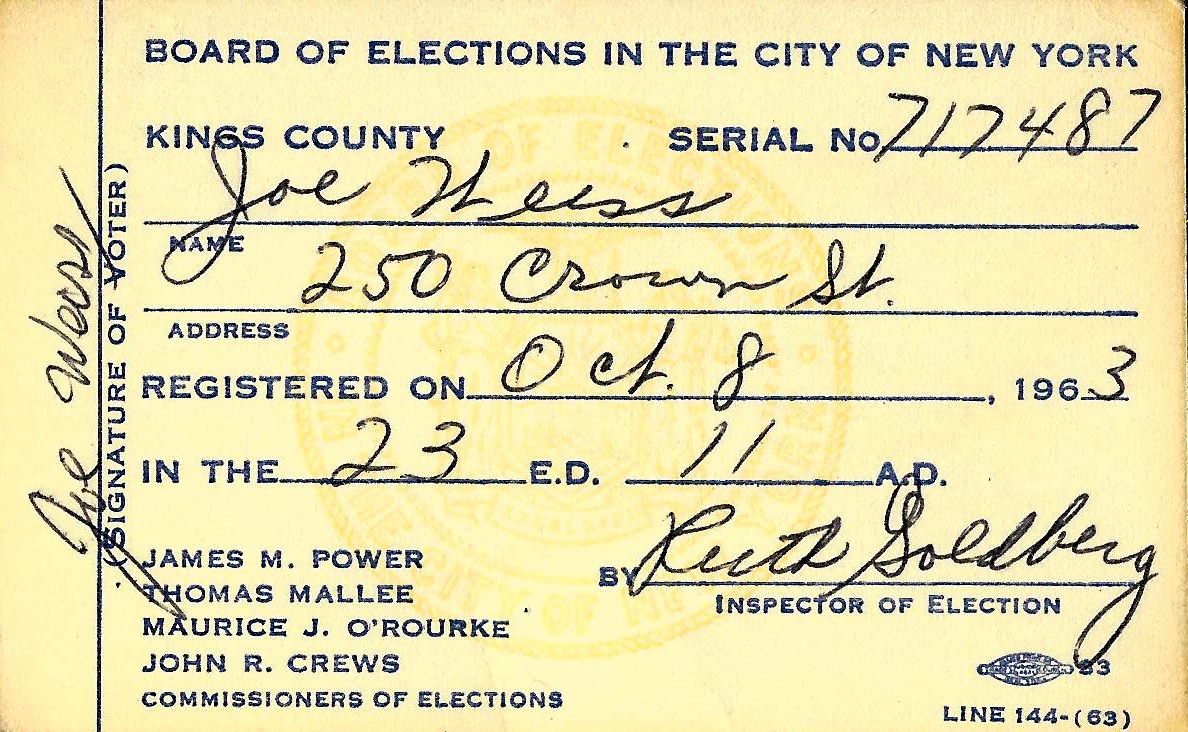 BOARD OF ELECTIONS IN THE CITY OF NEW YORK
KINGS COUNTY SERIAL No 717487
Joe Weiss
NAME
250 Crown St.
ADDRESS
REGISTERED ON Oct. 8, 1963
IN THE 23 E.D. 11 A.D.
JAMES M. POWER
THOMAS MALLEE
MAURICE J. O'ROURKE
JOHN R. CREWS
COMMISSIONERS OF ELECTIONS
BY Ruth Goldberg
INSPECTOR OF ELECTION
LINE 144-(63)
Joe Weiss
(SIGNATURE OF VOTER)